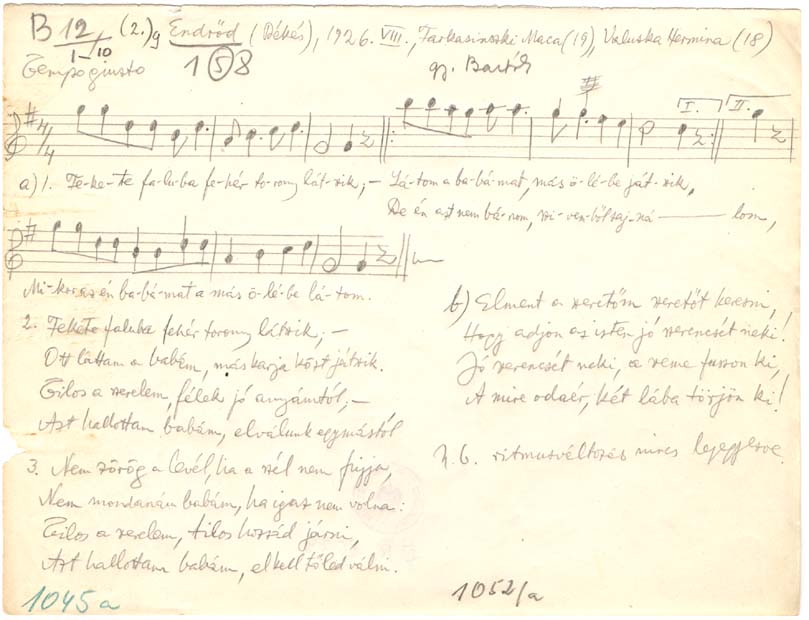 B 12 (2.)g Endrőd (Békés), 1926. VIII., Farkasinszki Maca (19), Valuska Hermina (18)
I-/10
Tempo giusto 1 5 8 gy. Bartók
4/4 I. II.
a) 1. Fe-ke-te fa-lu-ba fe-hér to-rony lát-szik; – Lá-tom a ba-bá-mat, más ö-lé-be ját-szik,
De én azt nem bá-nom, szi-vem-ből saj-ná – lom,
Mi-kor az én ba-bá-mat a más ö-lé-be lá-tom.
2. Fekete faluba fehér torony látszik; –
Ott láttam a babám, más karja közt játszik.
Tilos a szerelem, félek jó anyámtól; –
Azt hallottam babám, elválunk egymástól
3. Nem zörög a levél, ha a szél nem fújja,
Nem mondanám babám, ha igaz nem volna:
Tilos a szerelem, tilos hozzád járni,
Azt hallottam babám, el kell tőled válni.
b) Elment a szeretőm szeretőt keresni,
Hogy adjon az isten jó szerencsét neki!
Jó szerencsét neki, a szeme fusson ki,
A mire odaér, két lába törjön ki!
ritmusváltozás nincs lejegyezve.
1045 a
1052/a